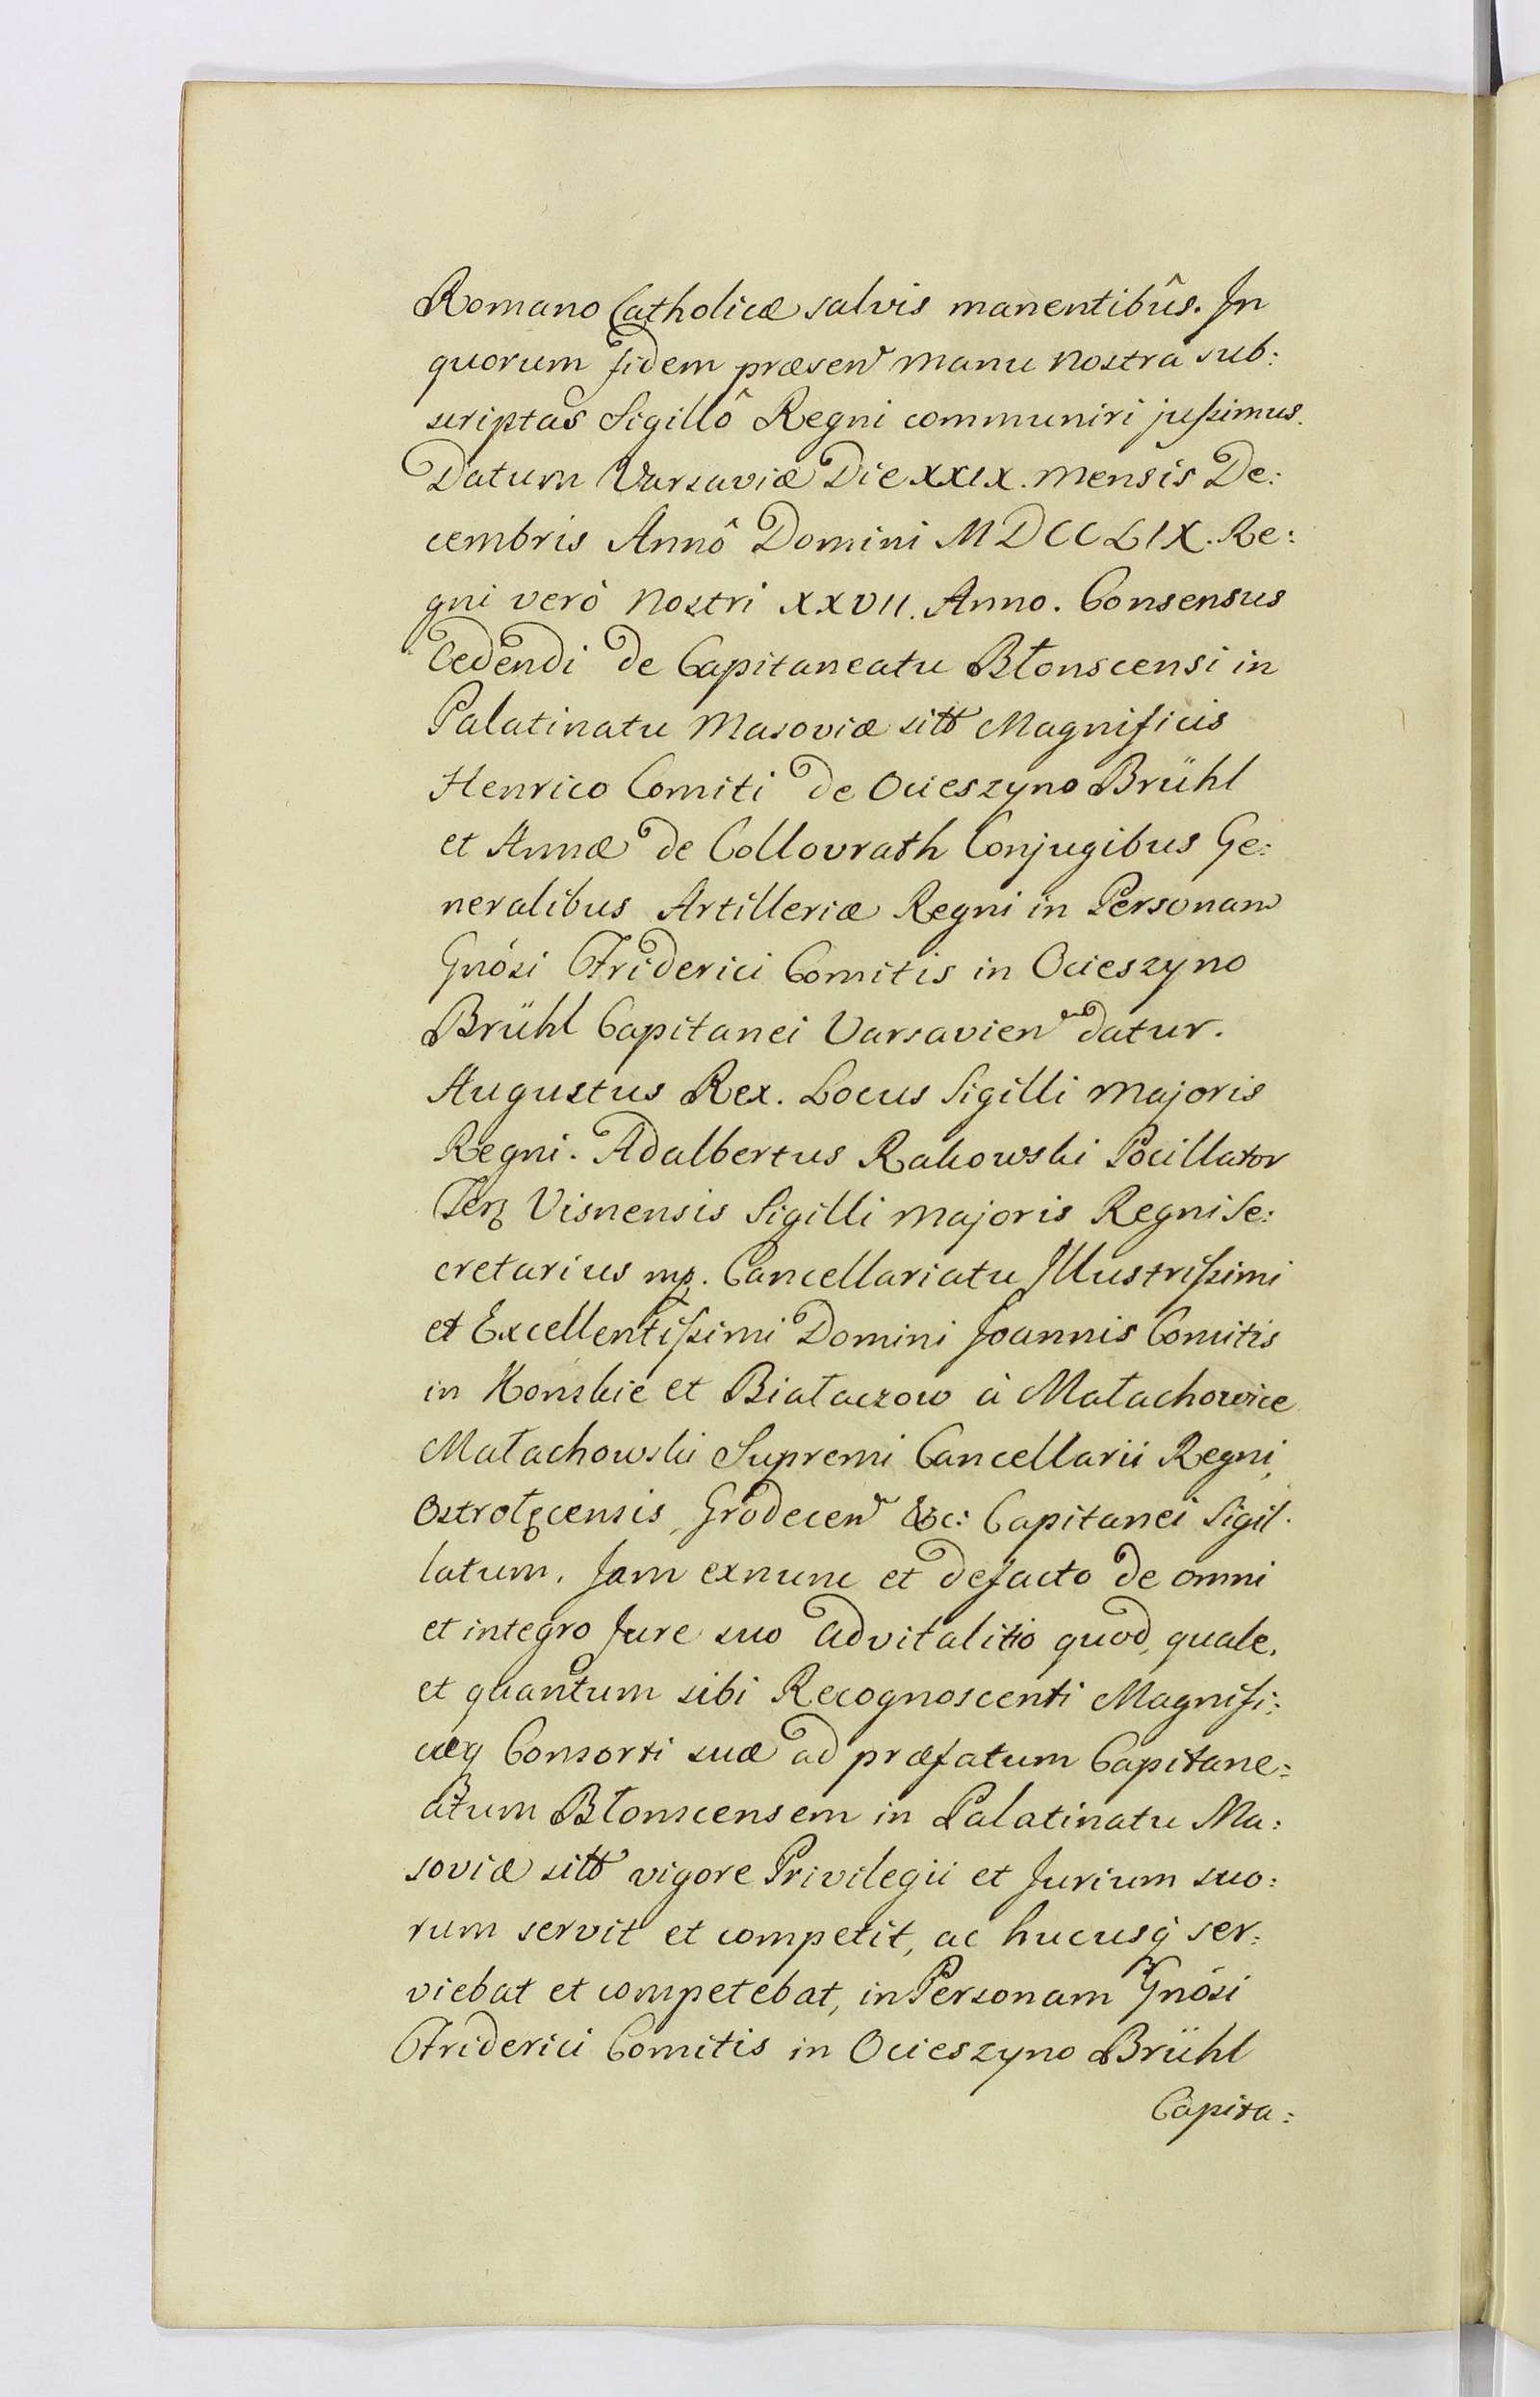 Romano Catholicæ salvis manentibûs. In
quorum fidem præsen manu nostra sub:
scriptas Sigillô Regni communiri jussimus.
Datum Varsaviæ Die XXIX. mensis De:
cembris Annô Domini MDCCLIX. Re:
gni verò nostri XXVII. Anno. Consensus
Cedendi de Capitaneatu Błonscensi in
Palatinatu Masoviæ sitt Magnificis
Henrico Comiti de Ocieszyno Brühl
et Annæ de Collovrath Conjugibus Ge:
neralibus Artilleriæ Regni in Personam
Gnôsi Friderici Comitis in Ocieszyno
Brühl Capitanei Varsavien datur.
Augustus Rex. Locus Sigilli majoris
Regni. Adalbertus Rakowski Pocillator
Terꝫ Visnensis Sigilli majoris Regni Se:
cretarius mp. Cancellariatu Illustrissimi
et Excellentissimi Domini Joannis Comitis
in Konskie et Białaczow à Małachowice
Małachowski Supremi Cancellarii Regni,
Ostrołęcensis, Grodecen &c: Capitanei Sigil.
latum. Jam exnunc et defacto de omni
et integro Jure suo advitalitio quod, quale,
et quantum sibi Recognoscenti Magnifi:
cæq Consorti suæ ad præfatum Capitane:
atum Błonscensem in Palatinatu Ma:
soviæ sitt vigore Privilegii et Jurium suo:
rum servit et competit, ac hucusq ser:
viebat et competebat, in Personam Gnôsi
Friderici Comitis in Ocieszyno Brühl
Capita: